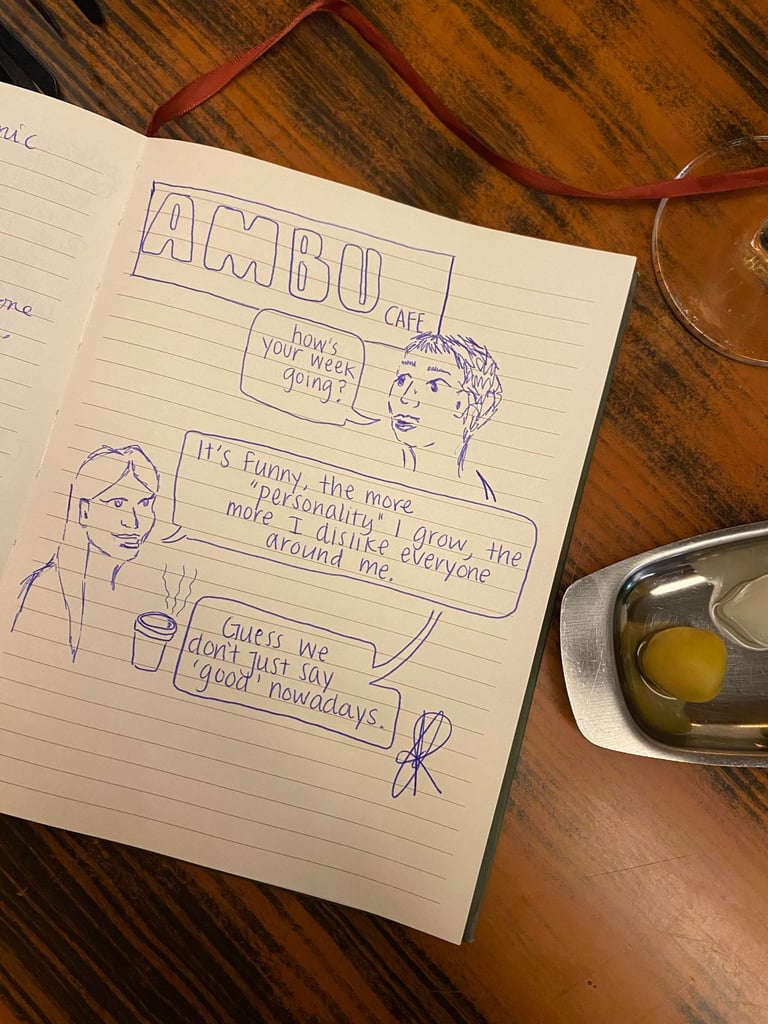 nic
one
AMBU
CAFE
how's
your week
going?
It's funny, the more
"personality" I grow, the
more I dislike everyone
around me.
Guess we
don't just say
'good' nowadays.